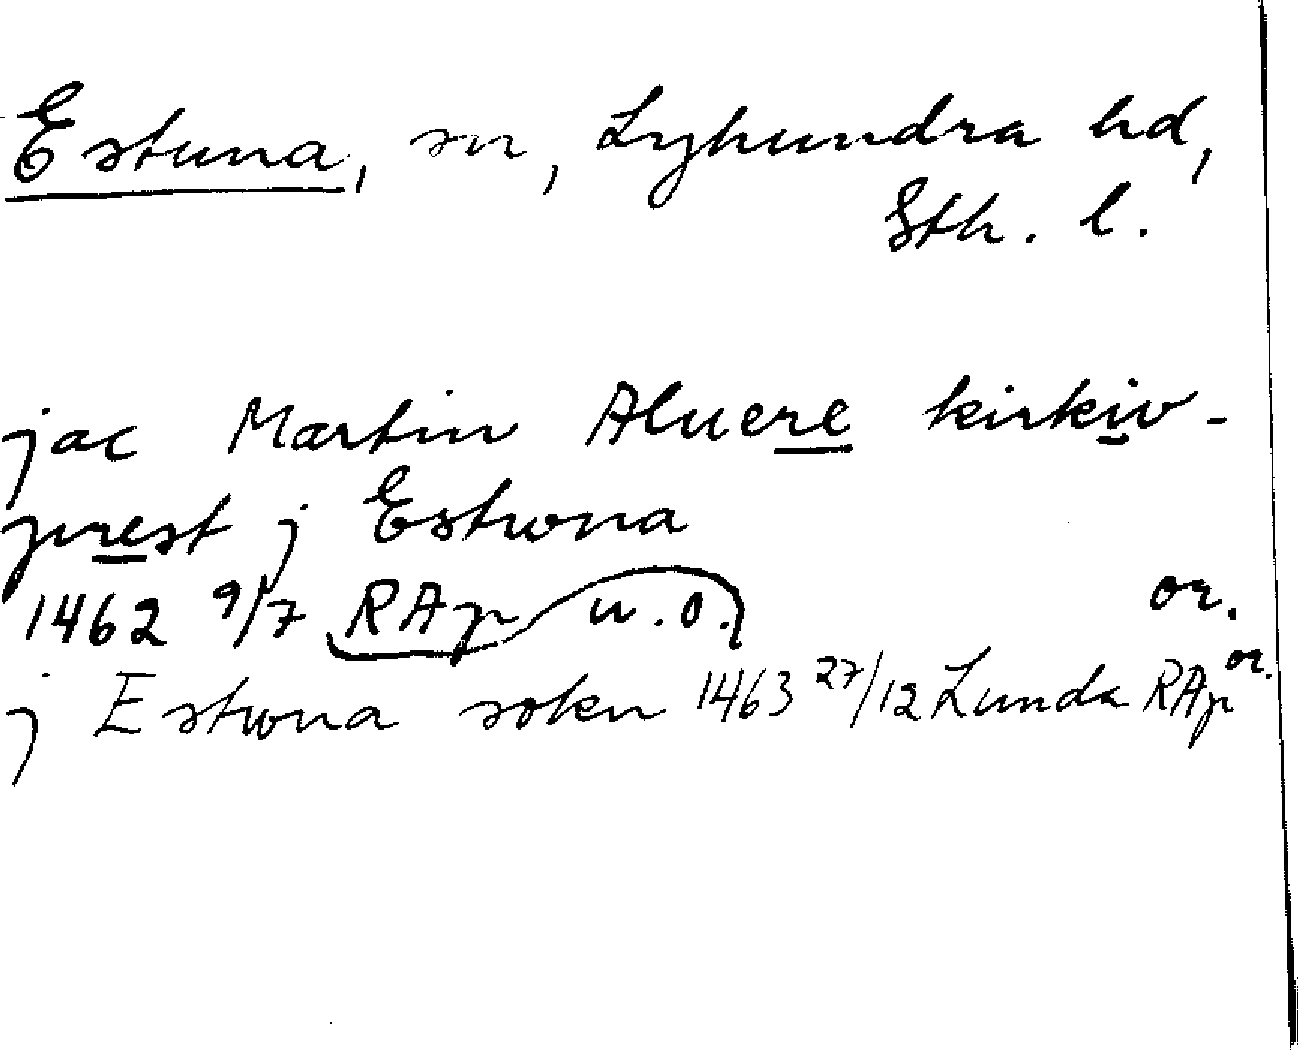 Estuna, sn, Lyhundra hd,
Sth. l.
jac Martin Aluere kirkiv-
prest j Estwna
1462 9/7 RAp u.o. or.
j Estwna sokn 1463 27/12 Lunda RAp or.